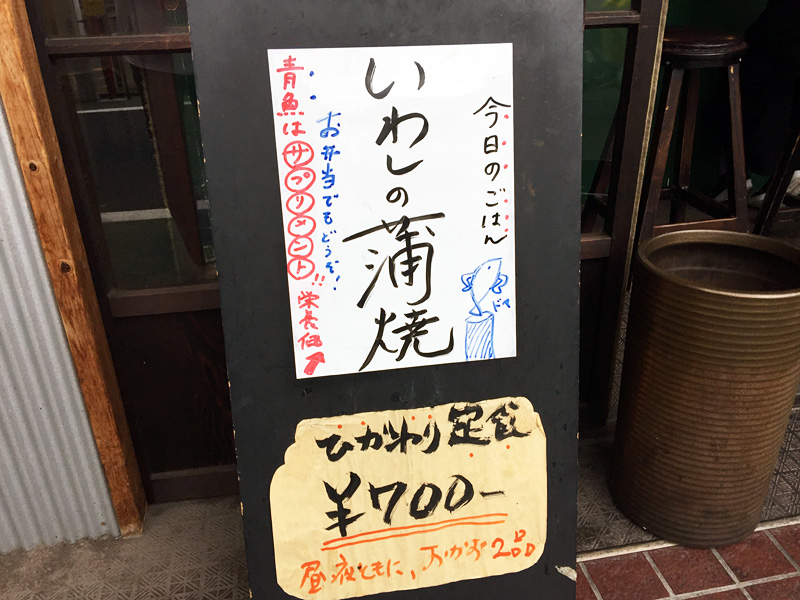 今日のごはん
いわしの蒲焼
お弁当でもどうぞ!
青魚はサプリメント!!
ドヤ
ひがわり定食
¥700-
昼夜ともに、おかず2品